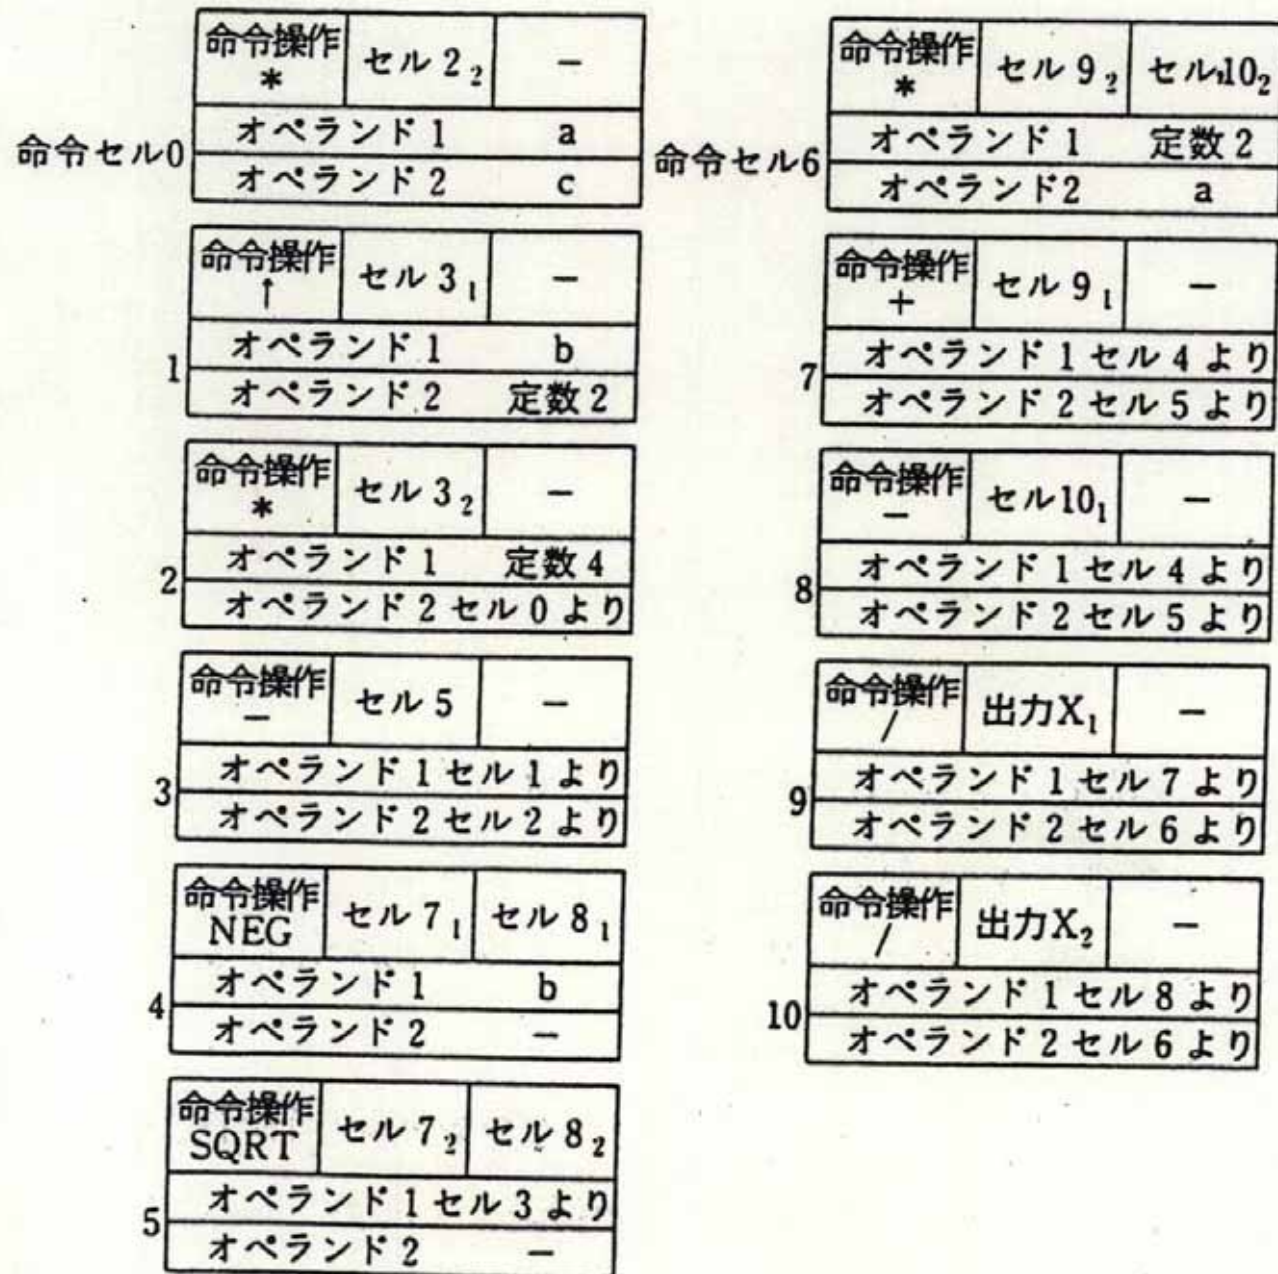 命令セル0
命令操作 * セル 2₂ −
オペランド 1 a
オペランド 2 c
1
命令操作 ↑ セル 3₁ −
オペランド 1 b
オペランド 2 定数 2
2
命令操作 * セル 3₂ −
オペランド 1 定数 4
オペランド 2 セル 0 より
3
命令操作 − セル 5 −
オペランド 1 セル 1 より
オペランド 2 セル 2 より
4
命令操作 NEG セル 7₁ セル 8₁
オペランド 1 b
オペランド 2 −
5
命令操作 SQRT セル 7₂ セル 8₂
オペランド 1 セル 3 より
オペランド 2 −
命令セル6
命令操作 * セル 9₂ セル10₂
オペランド 1 定数 2
オペランド2 a
7
命令操作 + セル 9₁ −
オペランド 1 セル 4 より
オペランド 2 セル 5 より
8
命令操作 − セル10₁ −
オペランド 1 セル 4 より
オペランド 2 セル 5 より
9
命令操作 / 出力X₁ −
オペランド 1 セル 7 より
オペランド 2 セル 6 より
10
命令操作 / 出力X₂ −
オペランド 1 セル 8 より
オペランド 2 セル 6 より